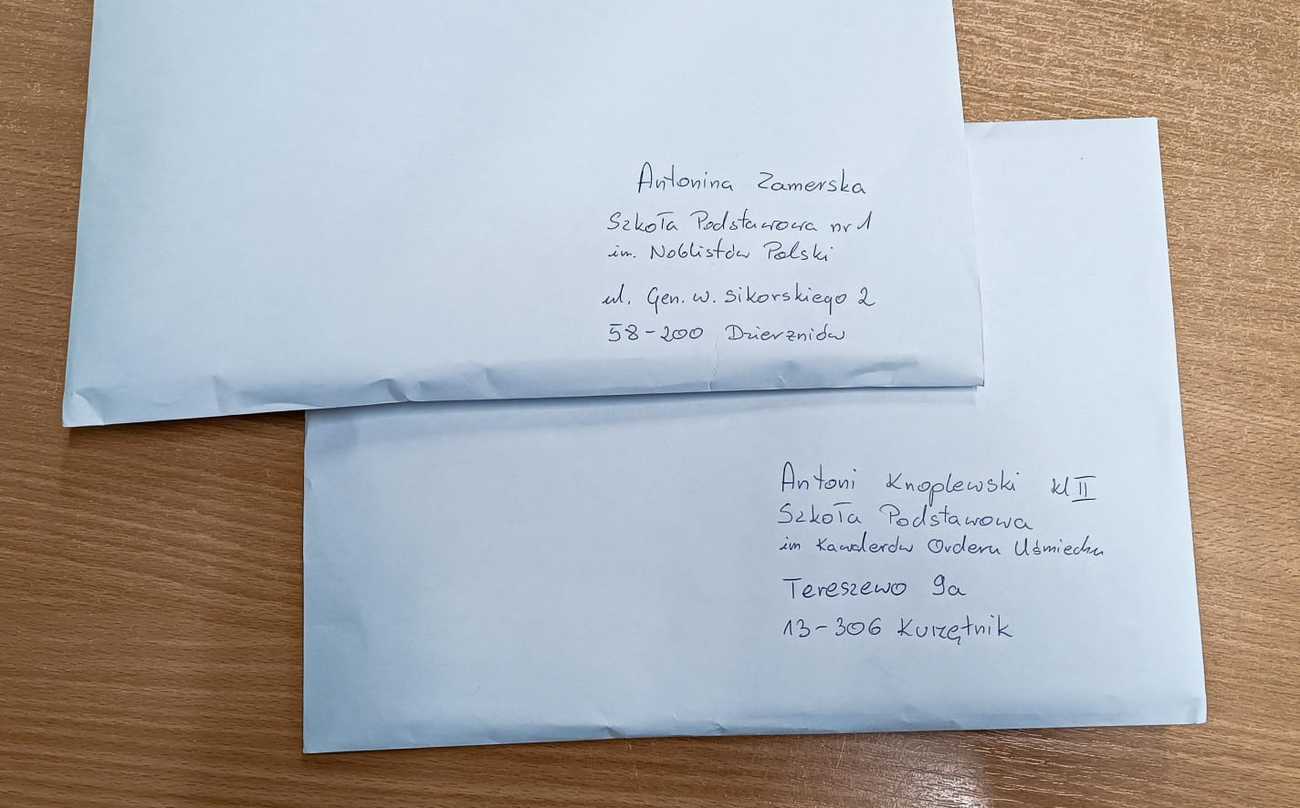 Antonina Zamerska
Szkoła Podstawowa nr 1
im. Noblistów Polski
ul. Gen. W. Sikorskiego 2
58-200 Dzierzniów
Antoni Knoplewski kl II
Szkoła Podstawowa
im Kawalerów Orderu Uśmiechu
Tereszewo 9a
13-306 Kurzętnik